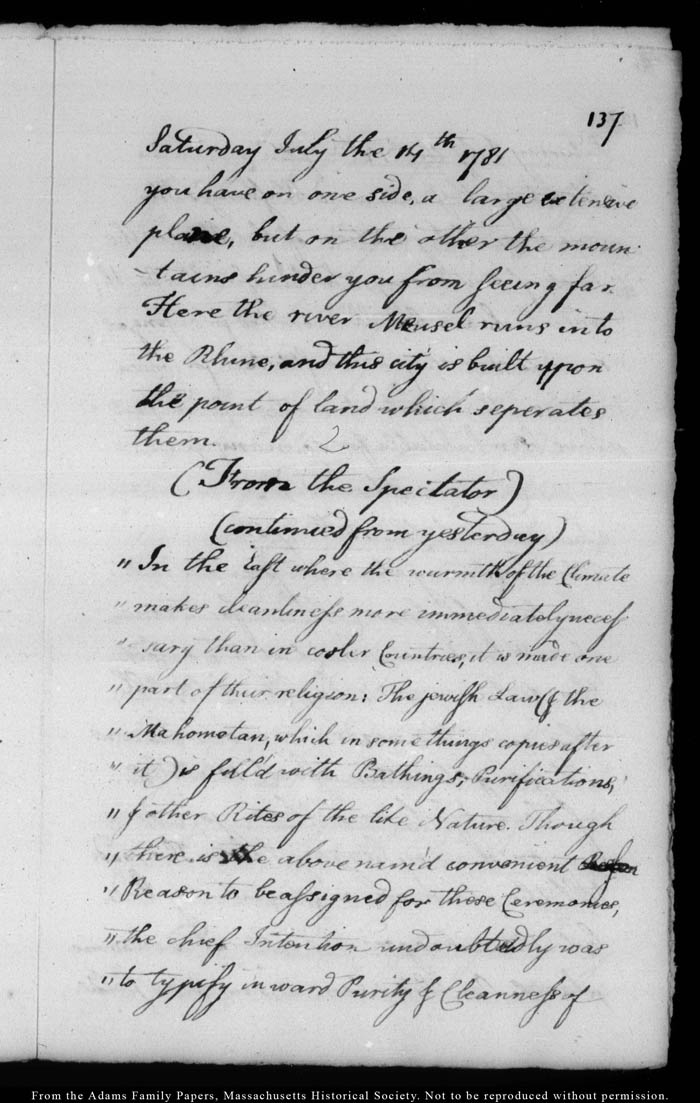 137
Saturday July the 14th 1781
you have on one side, a large extensive
plaine, but on the other the moun
-tains hinder you from seeing far.
Here the river Meusel runs into
the Rhine, and this city is built upon
the point of land which seperates
them. 2
(From the Spectator)
(continued from yesterday)
"In the East where the warmth of the Climate
"makes cleanliness more immediately neces
"sary than in cooler Countries, it is made one
"part of their religion: The jewish Law (& the
"Mahometan, which in some things copies after
"it) is fill'd with Bathings, Purifications,
"& other Rites of the like Nature. Though
"there is the above nam'd convenient
"Reason to be assigned for these Ceremonies,
"the chief Intention undoubtedly was
"to typify inward Purity & Cleanness of
From the Adams Family Papers, Massachusetts Historical Society. Not to be reproduced without permission.